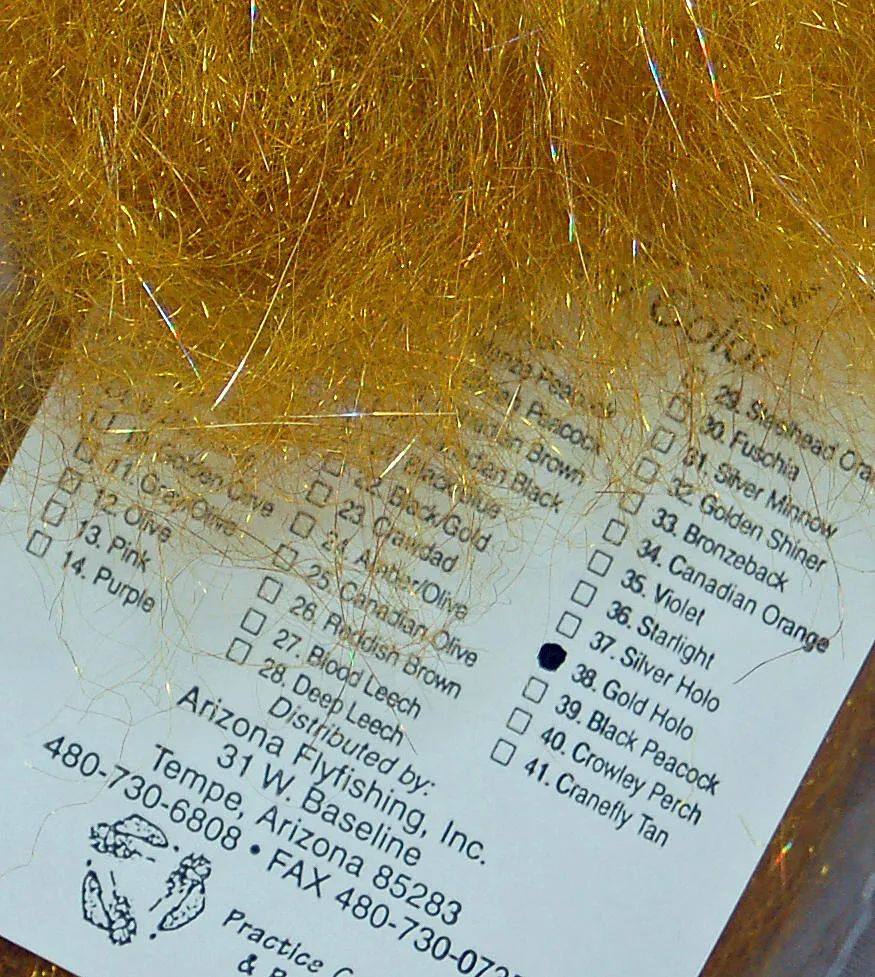 Color
Golden Olive
11. Gray/Olive
12. Olive
13. Pink
14. Purple
Peacock
Peacock
Brown
Black
Black/Blue
22. Black/Gold
23. Crawdad
24. Amber/Olive
25. Canadian Olive
26. Reddish Brown
27. Blood Leech
28. Deep Leech
29. Steelhead
30. Fuschia
31. Silver Minnow
32. Golden Shiner
33. Bronzeback
34. Canadian Orange
35. Violet
36. Starlight
37. Silver Holo
38. Gold Holo
39. Black Peacock
40. Crowley Perch
41. Cranefly Tan
Distributed by:
Arizona Flyfishing, Inc.
31 W. Baseline
Tempe, Arizona 85283
480-730-6808 • FAX 480-730-072
Practice C
&